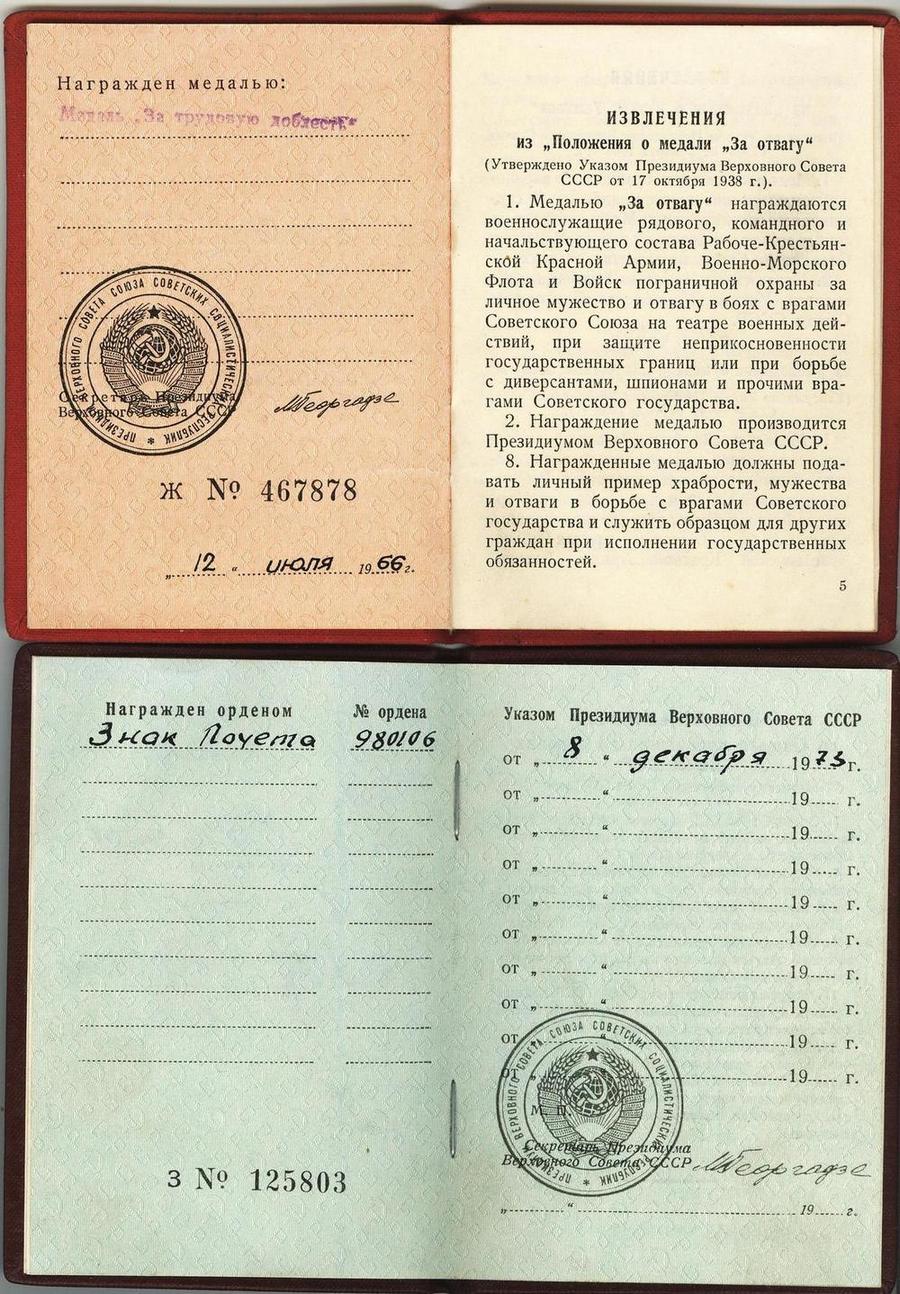 Награжден медалью:
Медаль „За трудовую доблесть“
ПРЕЗИДИУМ ВЕРХОВНОГО СОВЕТА СОЮЗА СОВЕТСКИХ СОЦИАЛИСТИЧЕСКИХ РЕСПУБЛИК *
Секретарь Президиума
Верховного Совета СССР
МГеоргадзе
Ж № 467878
„ 12 “ июля 1966г.
ИЗВЛЕЧЕНИЯ
из „Положения о медали „За отвагу“
(Утверждено Указом Президиума Верховного Совета
СССР от 17 октября 1938 г.).
1. Медалью „За отвагу“ награждаются
военнослужащие рядового, командного и
начальствующего состава Рабоче-Крестьян-
ской Красной Армии, Военно-Морского
Флота и Войск пограничной охраны за
личное мужество и отвагу в боях с врагами
Советского Союза на театре военных дей-
ствий, при защите неприкосновенности
государственных границ или при борьбе
с диверсантами, шпионами и прочими вра-
гами Советского государства.
2. Награждение медалью производится
Президиумом Верховного Совета СССР.
8. Награжденные медалью должны пода-
вать личный пример храбрости, мужества
и отваги в борьбе с врагами Советского
государства и служить образцом для других
граждан при исполнении государственных
обязанностей.
5
Награжден орденом № ордена
Знак Почета 980106
З № 125803
Указом Президиума Верховного Совета СССР
от „ 8 “ декабря 1973г.
от „ “ 19 г.
от „ “ 19 г.
от „ “ 19 г.
от „ “ 19 г.
от „ “ 19 г.
от „ “ 19 г.
от „ “ 19 г.
от „ “ 19 г.
от „ “ 19 г.
ПРЕЗИДИУМ ВЕРХОВНОГО СОВЕТА СОЮЗА СОВЕТСКИХ СОЦИАЛИСТИЧЕСКИХ РЕСПУБЛИК *
М. П.
Секретарь Президиума
Верховного Совета СССР
МГеоргадзе
„ “ 19 г.